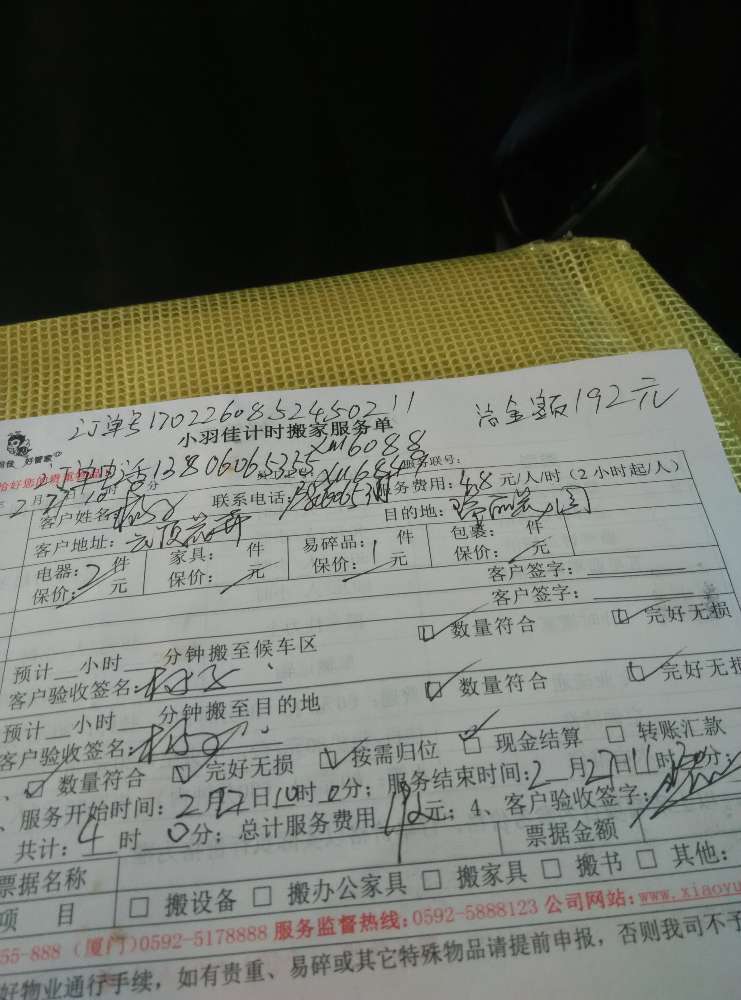 订单号1702260852450211
洽金额192元
小羽佳计时搬家服务单
好管家
订单电话13806065325
服务联号:
2月27日 时 分
客户姓名: 联系电话: 服务费用:48元/人/时(2小时起/人)
客户地址:云顶 目的地:
电器:2件 家具: 件 易碎品:1件 包裹: 件
保价: 元 保价: 元 保价: 元 保价: 元
客户签字:
客户签字:
预计 小时 分钟搬至候车区 数量符合 完好无损
客户验收签名:
预计 小时 分钟搬至目的地 数量符合 完好无损
客户验收签名:
数量符合 完好无损 按需归位 现金结算 转账汇款
服务开始时间:2月27日10时0分;服务结束时间:2月27日11时30分;
共计:4时0分;总计服务费用192元;4、客户验收签字:
票据名称 票据金额
项 目 搬设备 搬办公家具 搬家具 搬书 其他:
55-888(厦门)0592-5178888 服务监督热线:0592-5888123 公司网站:www.xiaoyu
好物业通行手续,如有贵重、易碎或其它特殊物品请提前申报,否则我司不予